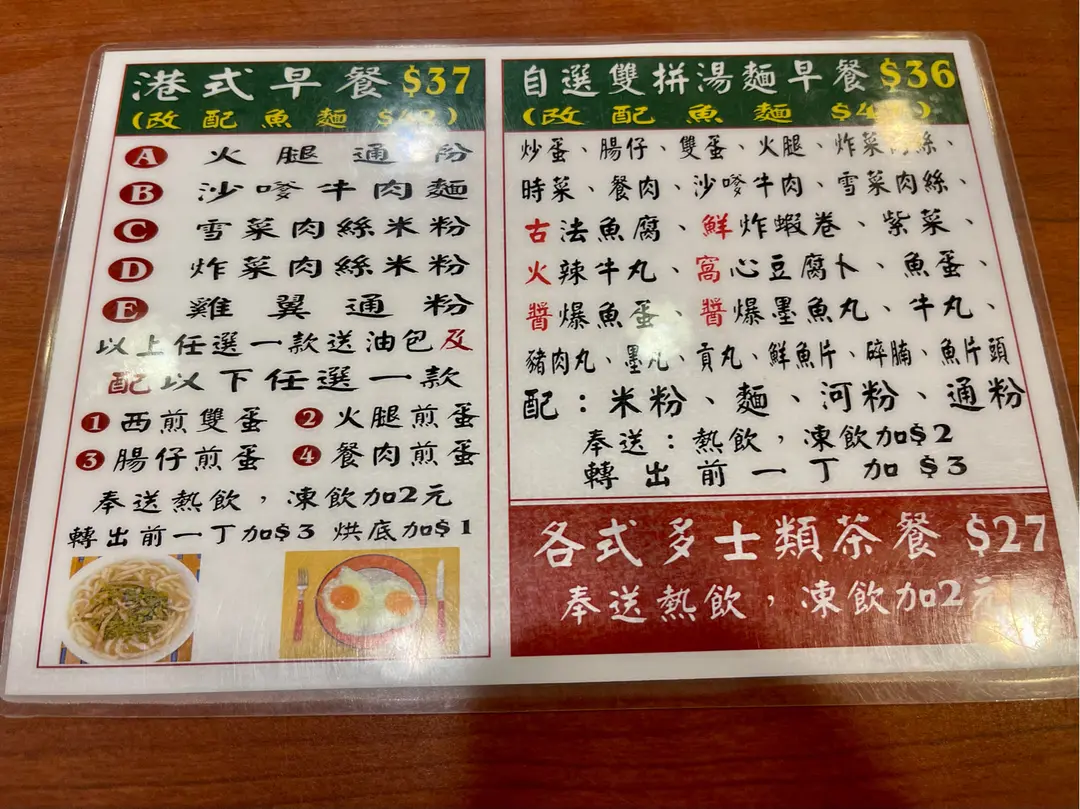 港式早餐 $37
(改配魚麵
A 火腿通粉
B 沙嗲牛肉麵
C 雪菜肉絲米粉
D 炸菜肉絲米粉
E 雞翼通粉
以上任選一款送油包及
配以下任選一款
1 西煎雙蛋 2 火腿煎蛋
3 腸仔煎蛋 4 餐肉煎蛋
奉送熱飲，凍飲加2元
轉出前一丁加$3 烘底加$1
自選雙拼湯麵早餐 $36
(改配魚麵
炒蛋、腸仔、雙蛋、火腿、炸菜肉絲、
時菜、餐肉、沙嗲牛肉、雪菜肉絲、
古法魚腐、鮮炸蝦卷、紫菜、
火辣牛丸、窩心豆腐卜、魚蛋、
醬爆魚蛋、醬爆墨魚丸、牛丸、
豬肉丸、墨丸、貢丸、鮮魚片、碎腩、魚片頭
配：米粉、麵、河粉、通粉
奉送：熱飲，凍飲加$2
轉出前一丁加$3
各式多士類茶餐 $27
奉送熱飲，凍飲加2元